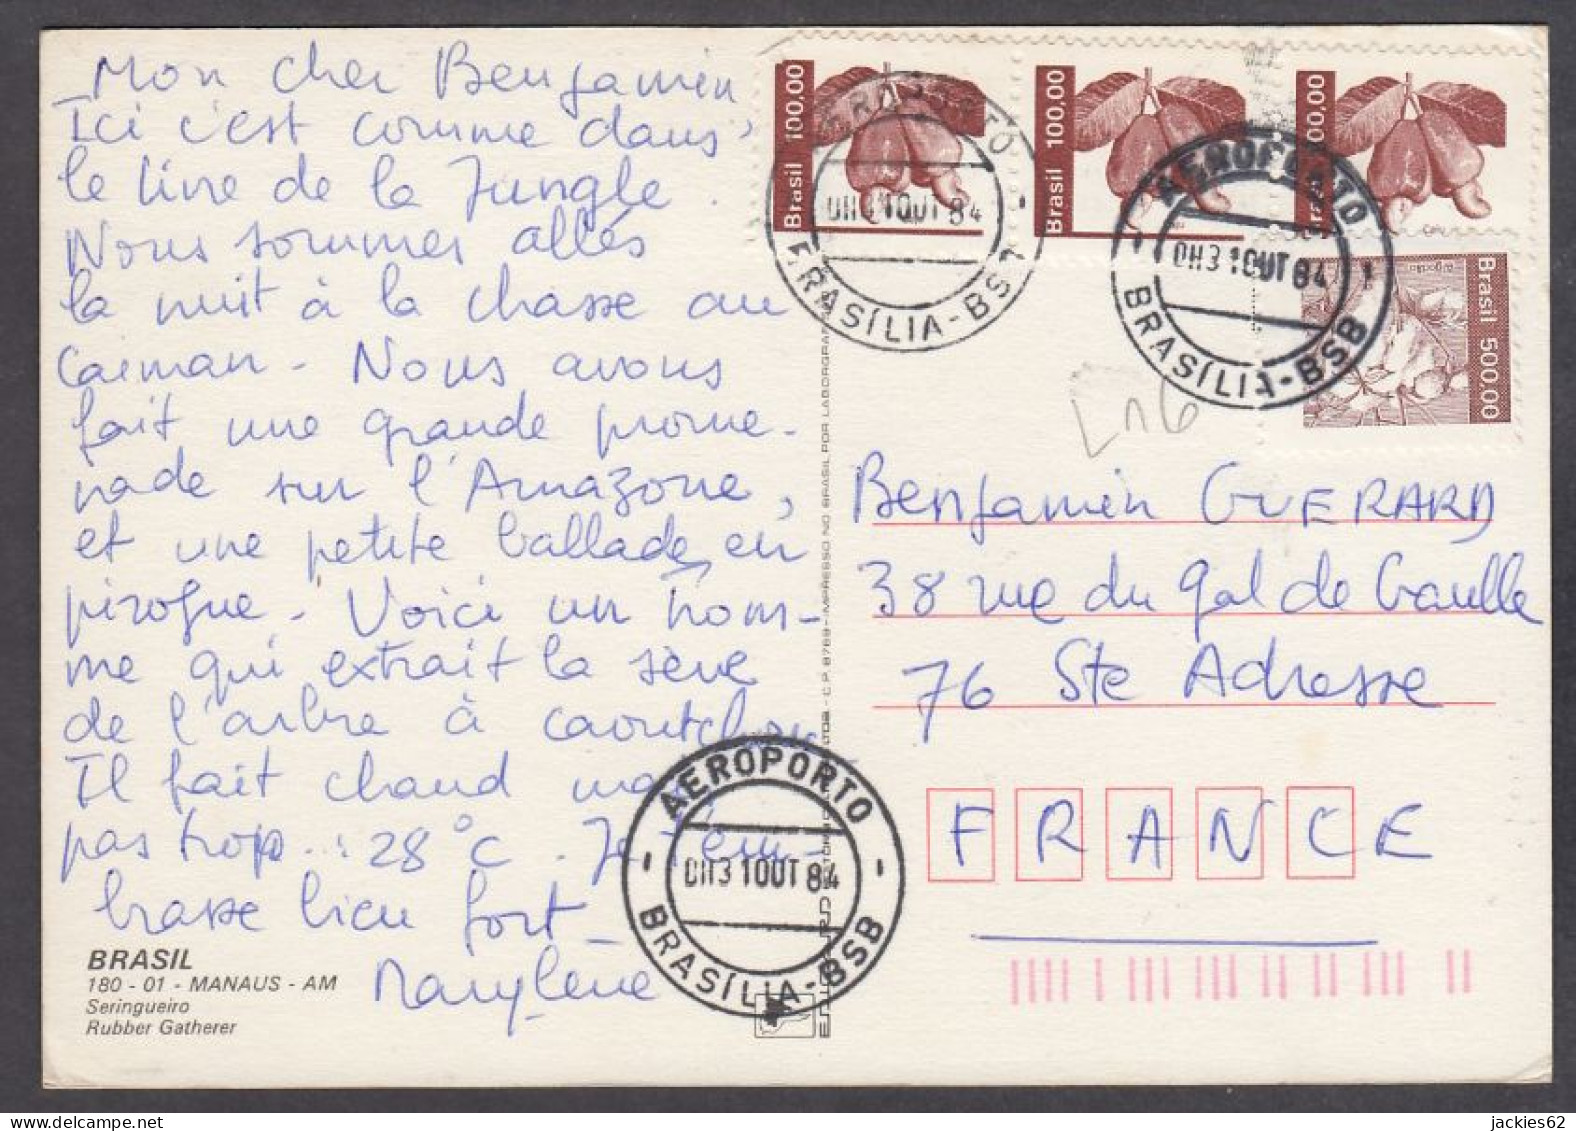 Mon cher Benjamin
Ici c'est comme dans
le livre de la Jungle.
Nous sommes allés
la nuit à la chasse au
Caïman - Nous avons
fait une grande prome-
nade sur l'Amazone,
et une petite ballade en
pirogue. Voici un hom-
me qui extrait la sève
de l'arbre à caoutchou
Il fait chaud mais
pas trop.. : 28°C. Je t'em-
brasse bien fort -
Marylene
BRASIL
180 - 01 - MANAUS - AM
Seringueiro
Rubber Gatherer
Brasil 100,00
Brasil 100,00
Brasil 100,00
Brasil 500,00
AEROPORTO
0H31OUT84
BRASÍLIA-BSB
AEROPORTO
0H31OUT84
BRASÍLIA-BSB
Benjamin GUERARD
38 rue du Gal de Gaulle
76 Ste Adresse
FRANCE
AEROPORTO
0H31OUT84
BRASÍLIA-BSB
C P 8769-IMPRESSO NO BRASIL POR
jackies62